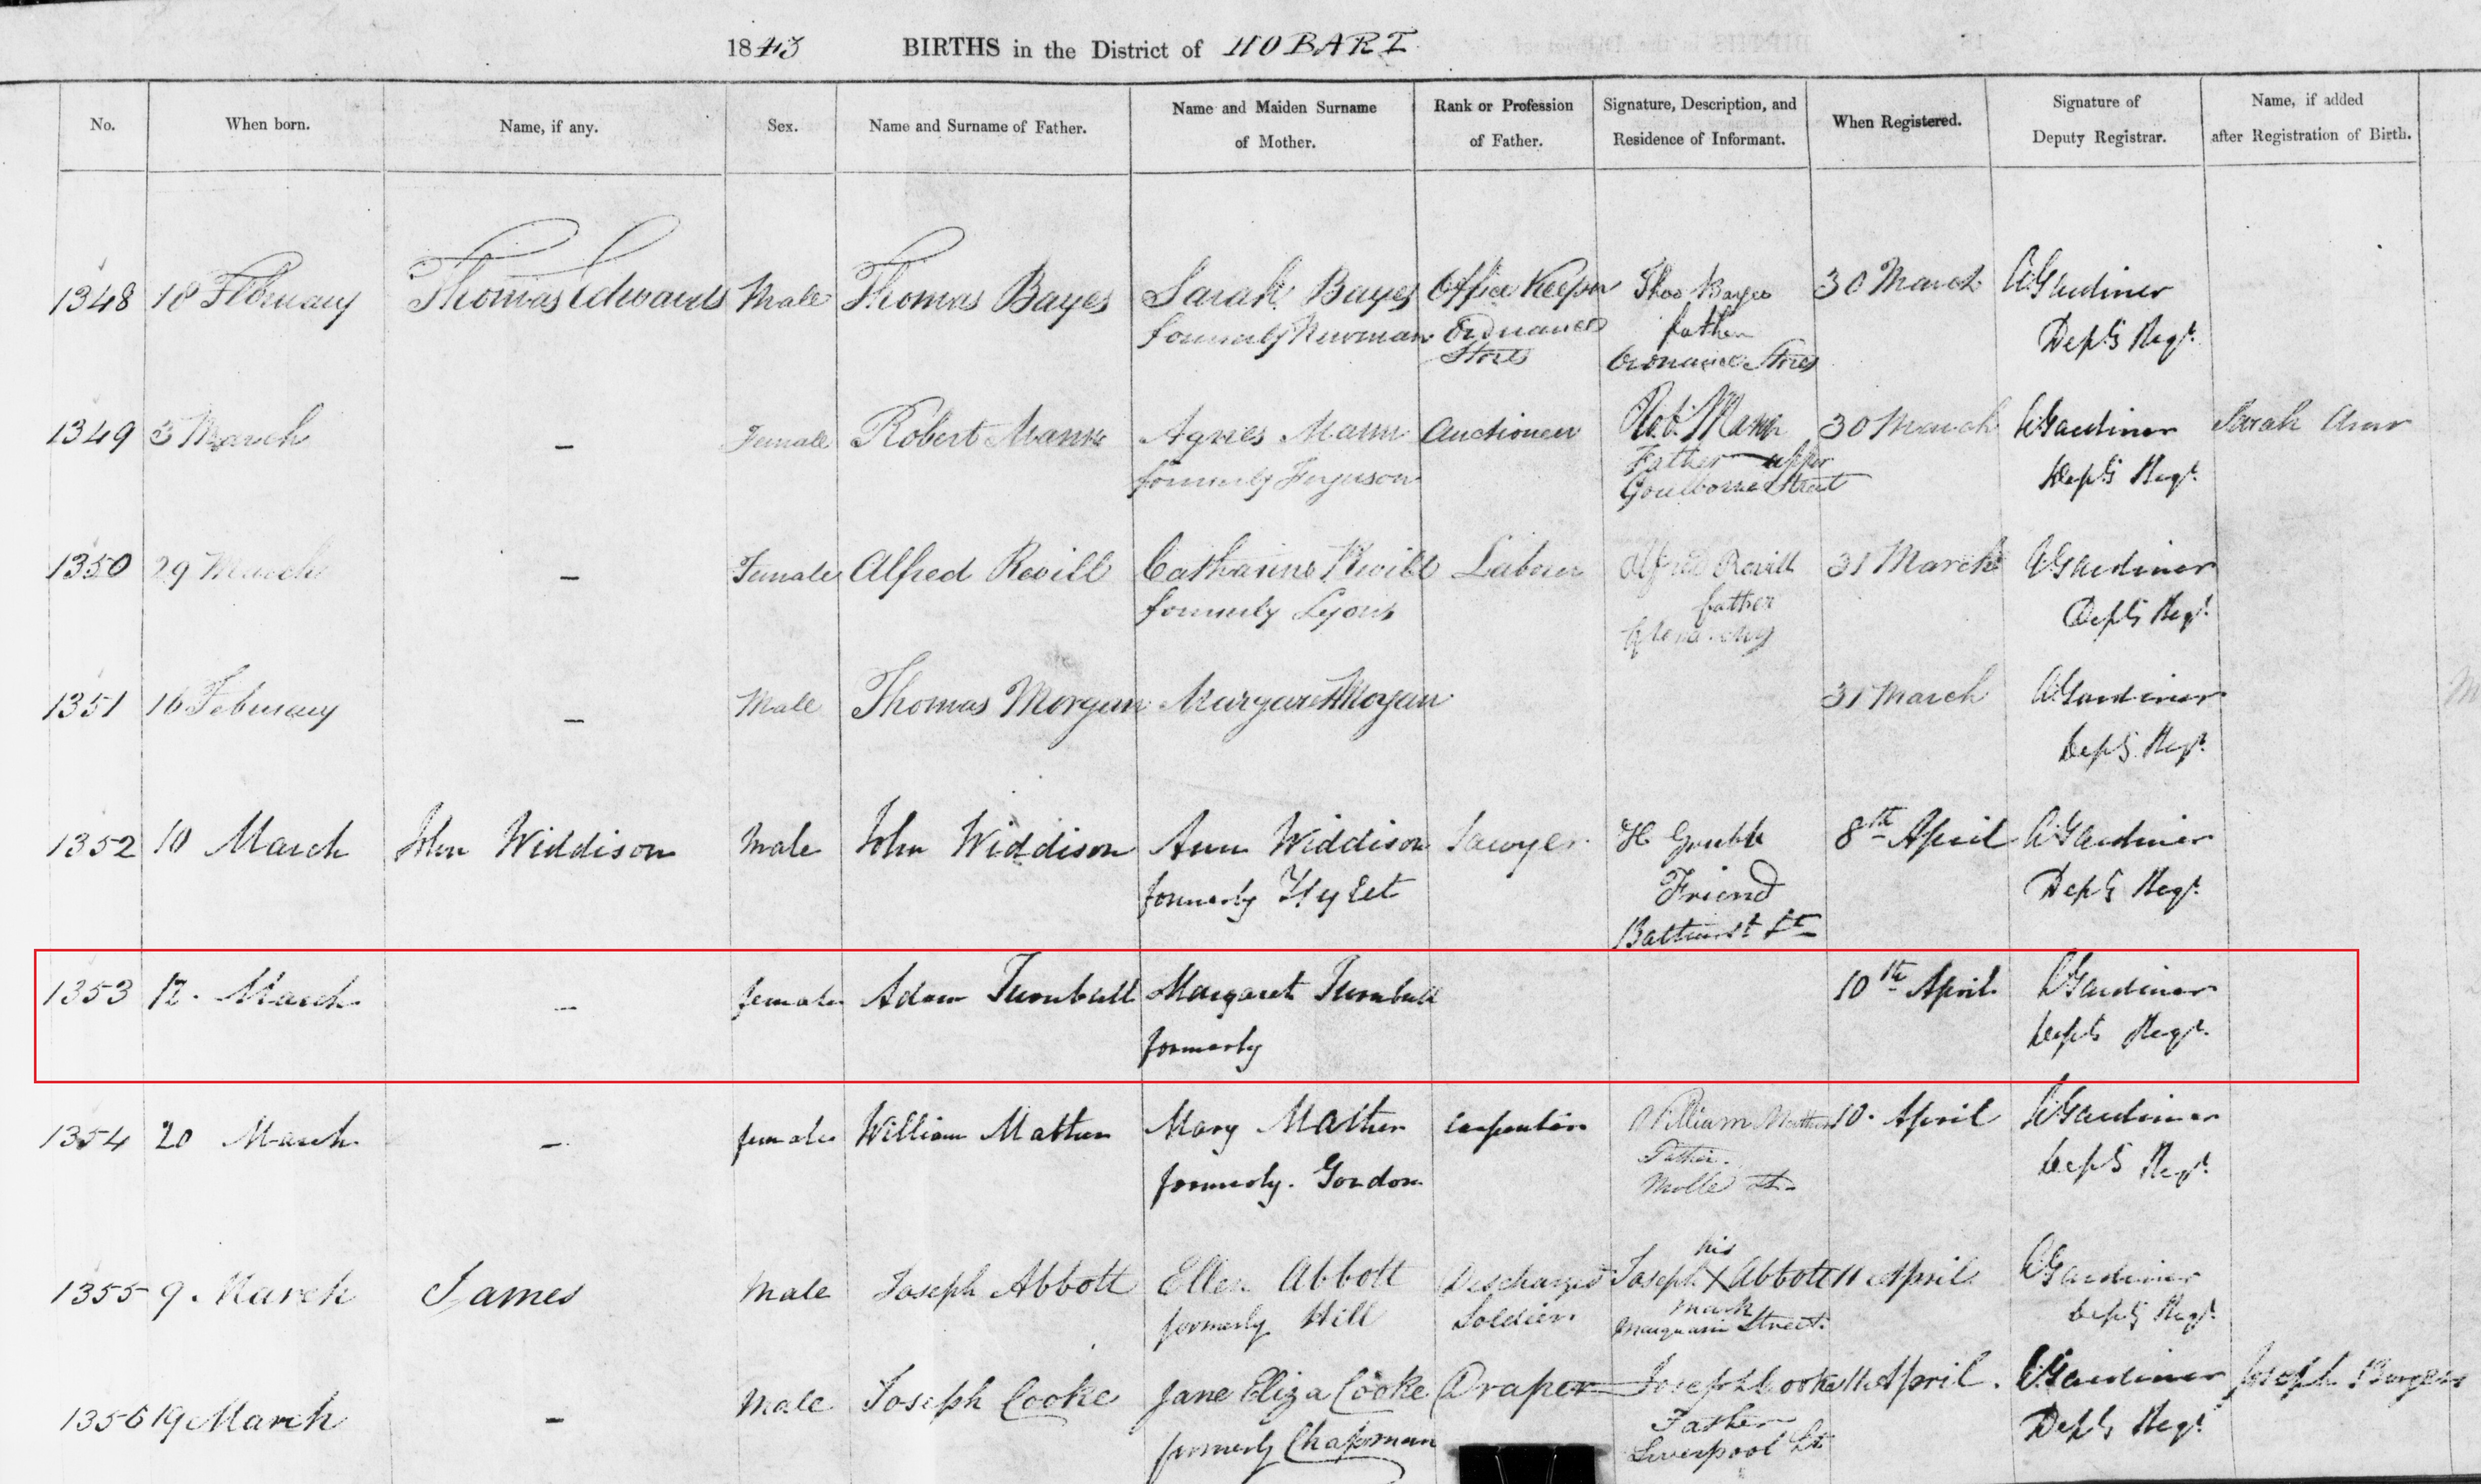 1843 BIRTHS in the District of HOBART
No. When born. Name, if any. Sex. Name and Surname of Father. Name and Maiden Surname of Mother. Rank or Profession of Father. Signature, Description, and Residence of Informant. When Registered. Signature of Deputy Registrar. Name, if added after Registration of Birth.
1348 18 February Thomas Edwards Male Thomas Bayes Sarah Bayes Office Keeper Thos Bayes 30 March W Gardiner
formerly Newman Ordnance father Depy Regr
Stores Ordnance Stores
1349 3 March – Female Robert Mann Agnes Mann Auctioneer Rob. Mann 30 March W Gardiner Sarah Ann
formerly Ferguson Father upper Depy Regr
Goulborne Street
1350 29 March – Female Alfred Revill Catharine Revill Labourer Alfred Revill 31 March W Gardiner
formerly Lyons father Depy Regr
Glenorchy
1351 16 February – Male Thomas Morgan Margaret Morgan 31 March W Gardiner
Depy Regr
1352 10 March John Widdison Male John Widdison Ann Widdison Sawyer H Grubb 8th April W Gardiner
formerly Friend Depy Regr
Bathurst St
1353 12. March – female Adam Turnbull Margaret Turnbull 10th April W Gardiner
formerly Depy Regr
1354 20 March – female William Mather Mary Mather Carpenter William Mather 10. April W Gardiner
formerly. Gordon Father. Depy Regr
Molle St
1355 9. March James Male Joseph Abbott Ellen Abbott Discharged Joseph his X mark Abbott 11 April W Gardiner
formerly Hill Soldier Macquarie Street. Depy Regr
1356 19 March – Male Joseph Cooke Jane Eliza Cooke Draper Joseph Cooke 11 April. W Gardiner Joseph Burgess
formerly Chapman Father Depy Regr
Liverpool St